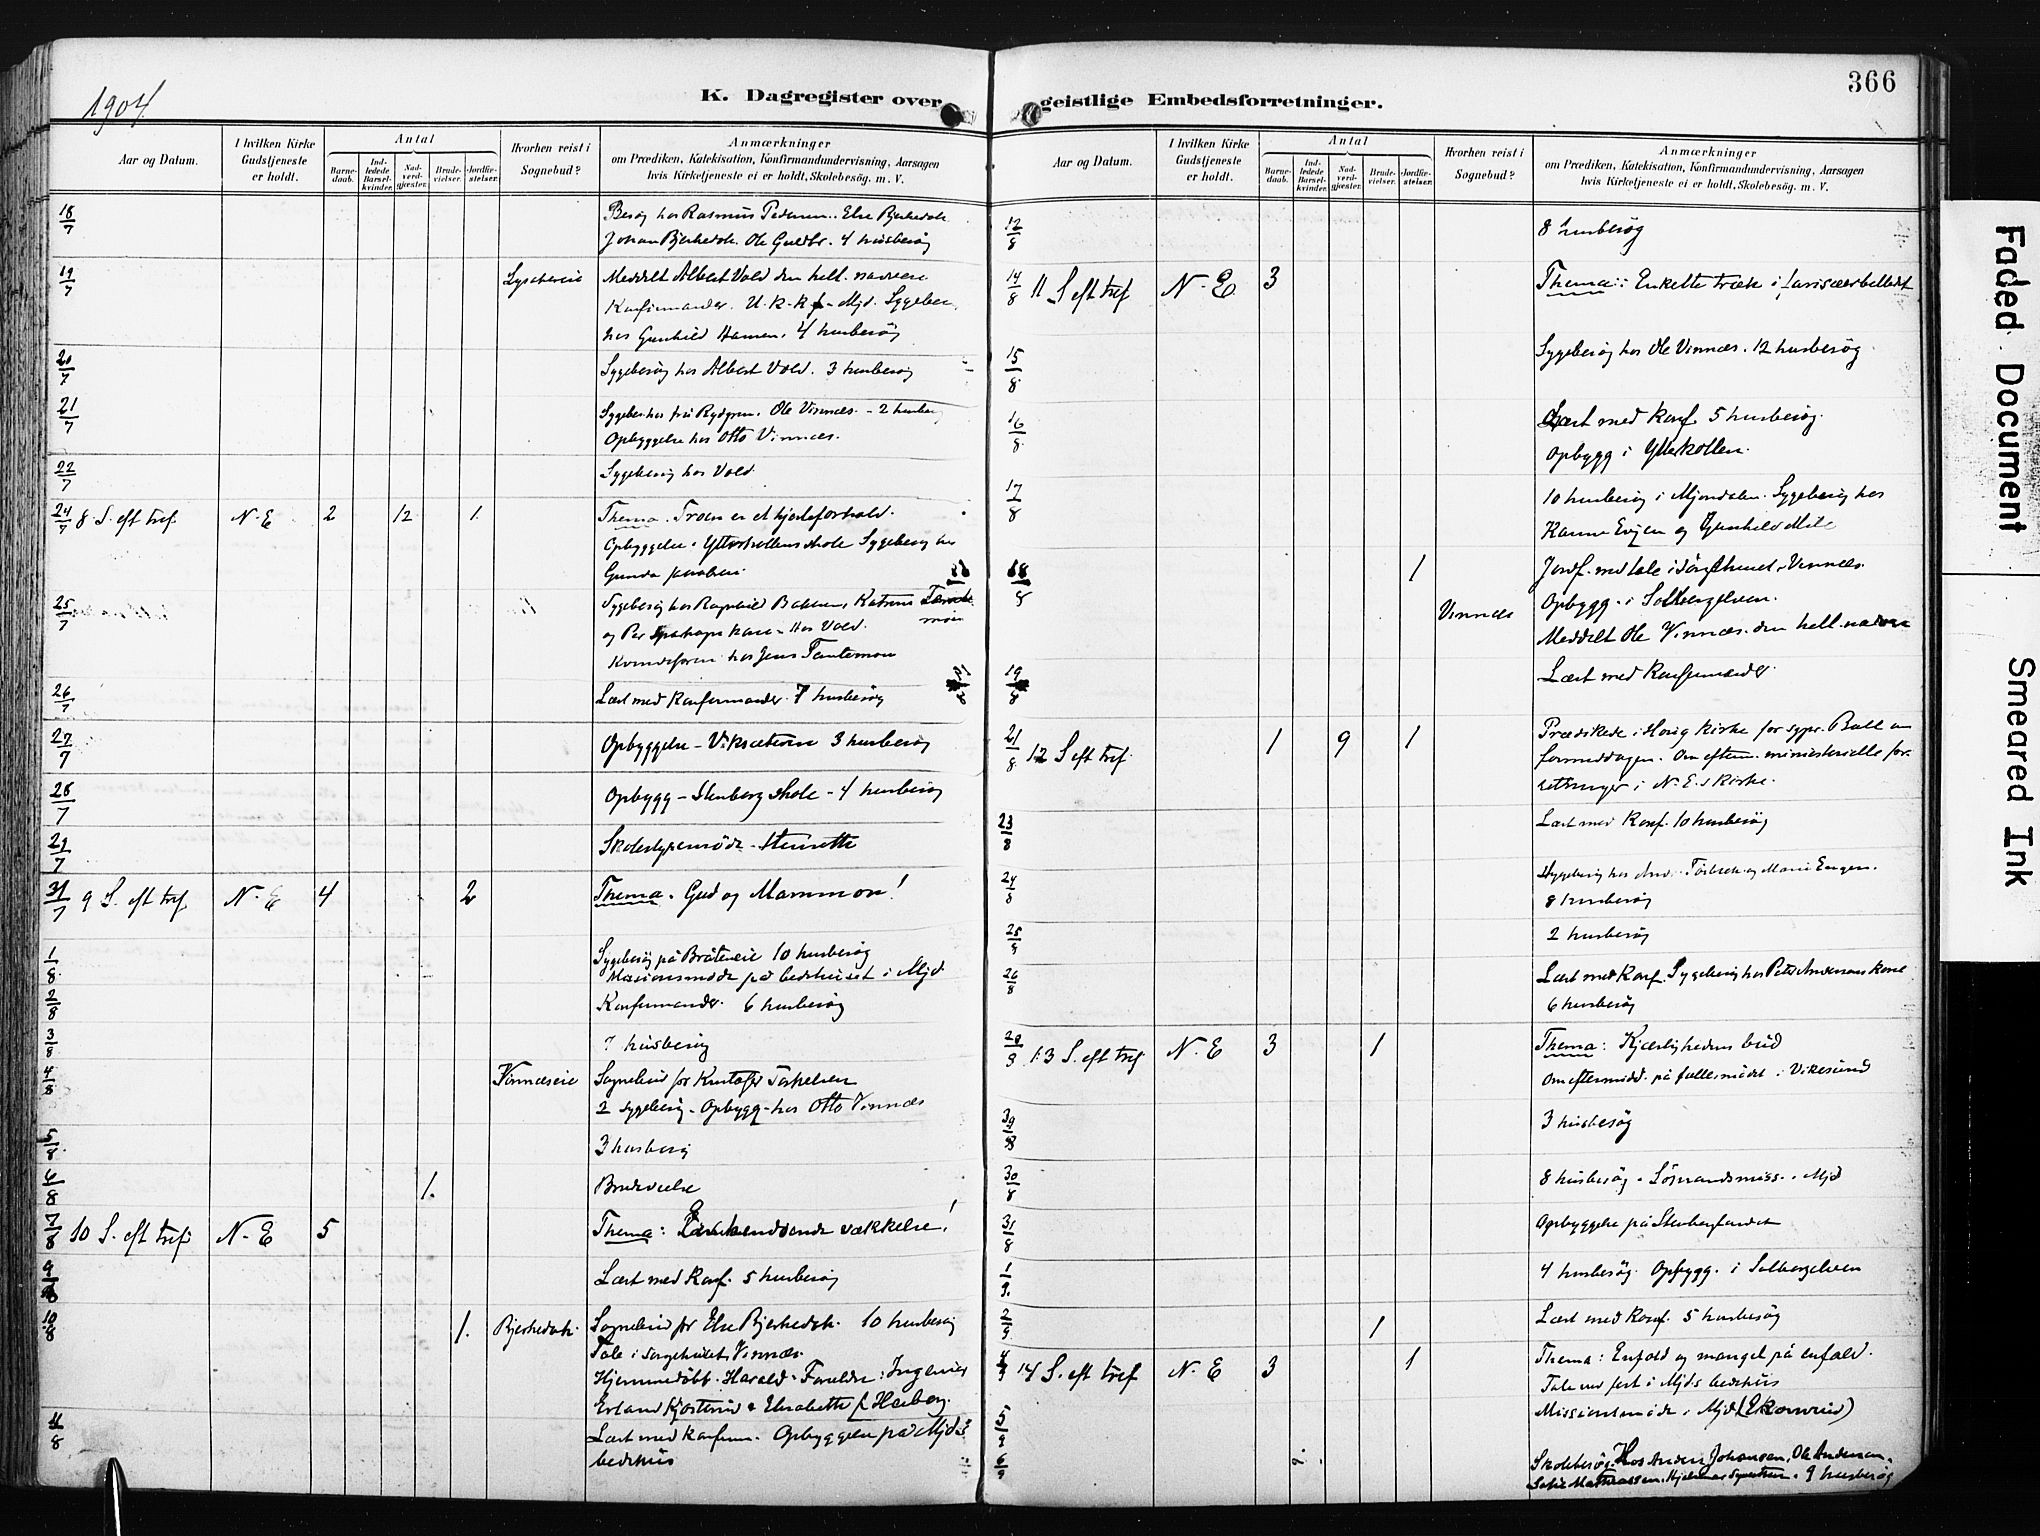 1904.
K. Dagregister over
Aar og Datum.
I hvilken Kirke Gudstjeneste er holdt.
Antal
Barnedaab.
Indledede Barselkvinder.
Nadverdgjæster.
Brudevielser.
Jordfæstelser.
Hvorhen reist i Sognebud?
Anmærkninger
om Prædiken, Katekisation, Konfirmandundervisning, Aarsagen
hvis Kirketjeneste ei er holdt, Skolebesög. m. V.
18/7 Besøg hos Rasmus Pedersen. Else Bjerkedok
Johan Bjerkedok. Ole Guldbr. 4 husbesøg
19/7 Meddelt Albert Vold den hell. nadvere
Konfirmander. U.k.k.f. - Mjd. Sygebes.
hos Gunhild Hansen. 4 husbesøg
20/7 Sygebesøg hos Albert Vold. 3 husbesøg
21/7 Sygebes hos fru Rydgren. Ole Vinnæs. - 2 husbes
Opbyggelse hos Otto Vinnæs.
22/7 Sygebesøg hos Vold
24/7 8. S. eft tref. N. E 2 12 1. Thema. Troen er et hjerteforhold.
Opbyggelse. Ytterkollens skole Sygebesøg hos
Gunda
25/7 Sygebesøg hos Ragnhild Bakken, Katrine
og Per kone - Hos Vold.
Kvindeforen. hos Jens
26/7 Læst med Konfirmander. 7 husbesøg
27/7 Opbyggelse - 3 husbesøg
28/7 Opbygg - Stenberg skole - 4 husbesøg
29/7 Skolestyremøde -
31/7 9 S. eft tref N. E 4 2 Thema. Gud og Mammon!
1/8 Sygebesøg på Bråteneie 10 husbesøg
Missionsmøde på bedehuset i Mjd.
2/8 Konfirmander. 6 husbesøg
3/8 7 husbesøg
4/8 Vinnæseie Sognebud for Kristofer Torkelsen
2 sygebesøg - Opbygg - hos Otto Vinnæs
5/8 3 husbesøg
6/8 1. Brudevielse
7/8 10 S. eft tref. N. E 5 Thema: vækkelse!
9/8 Læst med Konf. 5 husbesøg
10/8 1. Bjerkedok. Sognebud for Else Bjerkedok. 10 husbesøg
Tale i sørgehuset, Vinnæs.
Hjemmedøbt. Harald. Forældre: Ingeniør
Erland Kjøsterud & Elisabeth f. Horberg.
11/8 Læst med konfirm. Opbyggelse på Mjd's
bedehus
366
geistlige Embedsforretninger.
Aar og Datum.
I hvilken Kirke Gudstjeneste er holdt.
Antal
Barnedaab.
Indledede Barselkvinder.
Nadverdgjæster.
Brudevielser.
Jordfæstelser.
Hvorhen reist i Sognebud?
Anmærkninger
om Prædiken, Katekisation, Konfirmandundervisning, Aarsagen
hvis Kirketjeneste ei er holdt, Skolebesög. m. V.
12/8 8 husbesøg
14/8 11 S eft tref N. E 3 Thema: Enkelte træk i farisæerbilledet
15/8 Sygebesøg hos Ole Vinnæs. 12 husbesøg
16/8 Læst med Konf 5 husbesøg.
Opbygg i Ytterkollen.
17/8 10 husbesøg i Mjøndalen. Sygebesøg hos
Karine Evjen og Gunhild Mile
18/8 1 Jordf. med tale i sørgehuset, Vinnæs.
Opbygg. i Solbergelven.
Vinnæs Meddelt Ole Vinnæs den hell. nadvere
19/8 Læst med Konfirmander
21/8 12 S eft tref. 1 9 1 Prædikede i Haug kirke for sgpr. Bull om
formiddagen. Om efterm. ministerielle for-
retninger i N. E.s kirke.
23/8 Læst med Konf. 10 husbesøg
24/8 Sygebesøg hos And. og Marie Engen.
8 husbesøg
25/8 2 husbesøg
26/8 Læst med Konf. Sygebesøg hos Peter Andersens kone
6 husbesøg
28/8 13 S. eft tref N. E 3 1 Thema: Kjærlighedens bud
Om eftermidd. på fællesmødet i Vikesund
29/8 3 husbesøg
30/8 8 husbesøg. Sømandsmiss. Mjd
31/8 Opbyggelse på Stenberglandet
1/9. 4 husbesøg. Opbygg. i Solbergelven
2/9 1 Læst med Konf. 5 husbesøg
4/9 14 S. eft tref N. E 3 1 Thema: Enfold og mangel på enfold.
Tale ved fest i Mjds bedehus
5/9 Missionsmøde i Mjd (Ekornrud)
6/9 Skolebesøg. Hos Anders Johansen, Ole Andersen,
Sofie Mathiassen, Hjalmar Syvertsen. 9 husbesøg
Faded Document
Smeared Ink